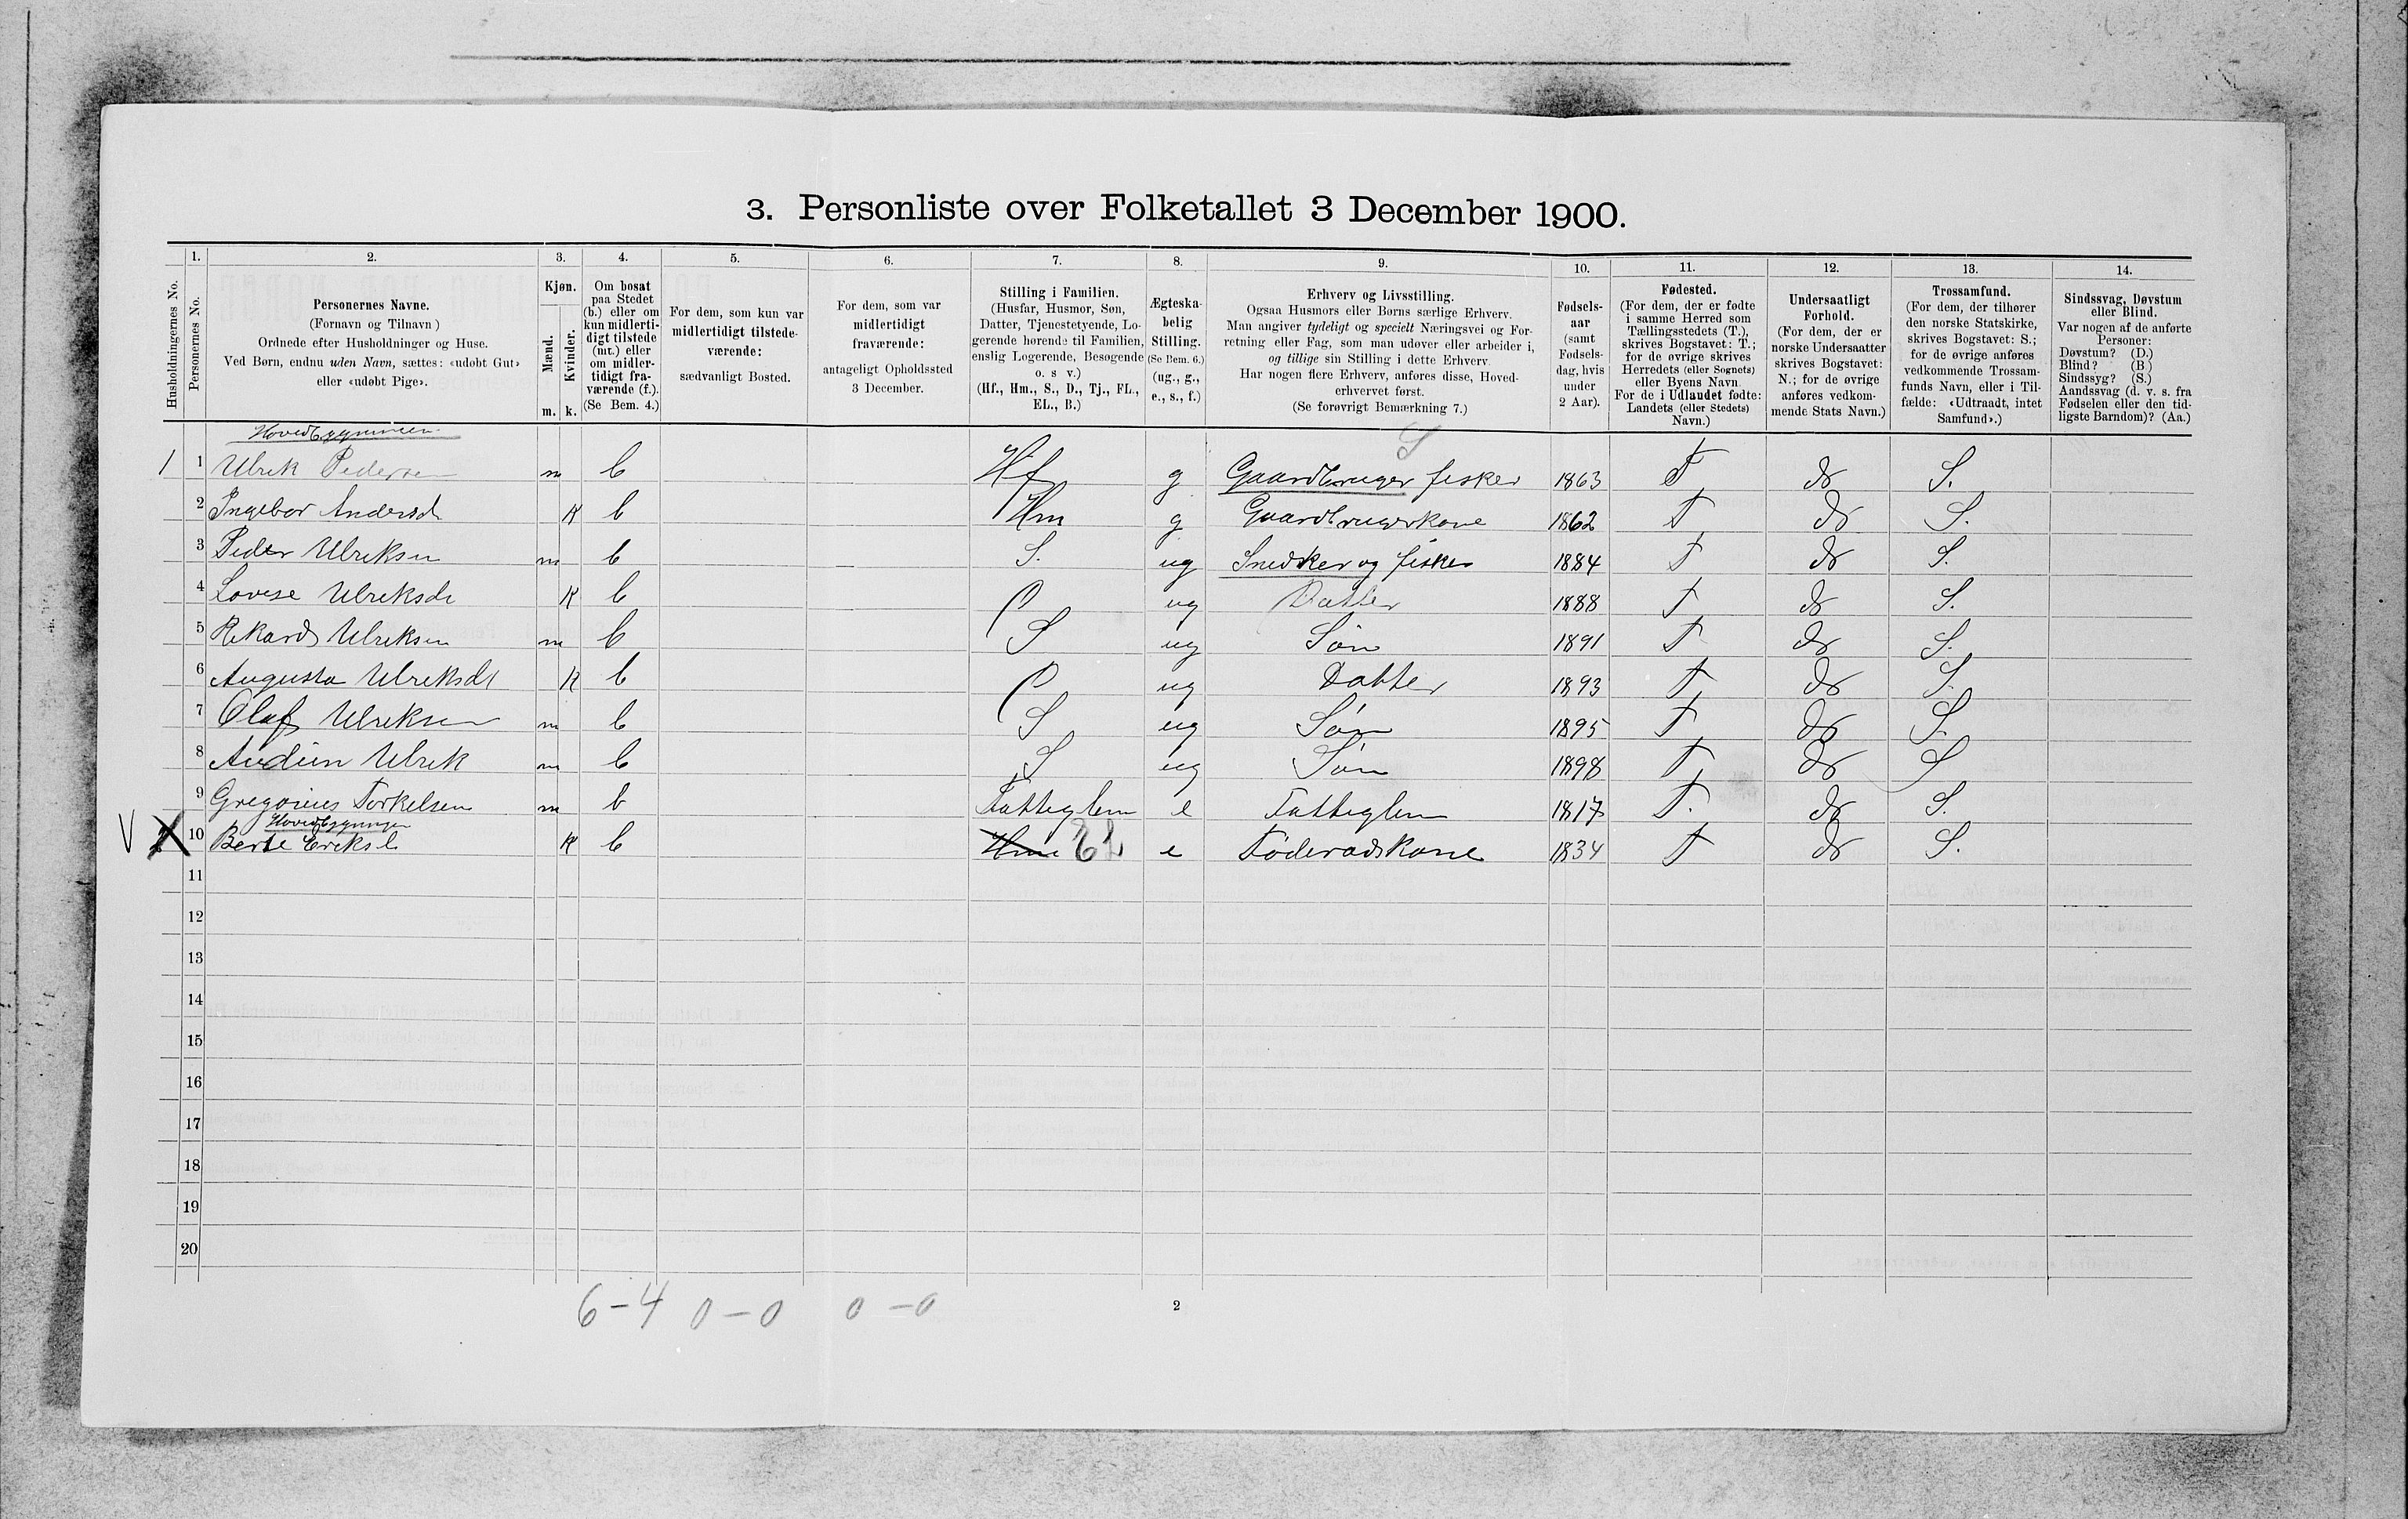 3. Personliste over Folketallet 3 December 1900.
Husholdningernes No.
1. Personernes No.
2. Personernes Navne.
(Fornavn og Tilnavn)
Ordnede efter Husholdninger og Huse.
Ved Børn, endnu uden Navn, sættes: «udøbt Gut»
eller «udøbt Pige».
3. Kjøn.
Mænd. m.
Kvinder. k.
4. Om bosat
paa Stedet
(b.) eller om
kun midlerti-
digt tilstede
(mt.) eller
om midler-
tidigt fra-
værende (f.).
(Se Bem. 4.)
5. For dem, som kun var
midlertidigt tilstede-
værende:
sædvanligt Bosted.
6. For dem, som var
midlertidigt
fraværende:
antageligt Opholdssted
3 December.
7. Stilling i Familien.
(Husfar, Husmor, Søn,
Datter, Tjenestetyende, Lo-
gerende hørende til Familien,
enslig Logerende, Besøgende
o. s v.)
(Hf., Hm., S., D., Tj., FL.,
EL., B.)
8. Ægteska-
belig
Stilling.
(Se Bem. 6.)
(ug., g.,
e., s., f.)
9. Erhverv og Livsstilling.
Ogsaa Husmors eller Børns særlige Erhverv.
Man angiver tydeligt og specielt Næringsvei og For-
retning eller Fag, som man udover eller arbeider i,
og tillige sin Stilling i dette Erhverv.
Har nogen flere Erhverv, anføres disse, Hoved-
erhvervet først.
(Se forøvrigt Bemærkning 7.)
10. Fødsels-
aar
(samt
Fødsels-
dag, hvis
under
2 Aar).
11. Fødested.
(For dem, der er fødte
i samme Herred som
Tællingsstedets (T.),
skrives Bogstavet: T.;
for de øvrige skrives
Herredets (eller Sognets)
eller Byens Navn.
For de i Udlandet fødte:
Landets (eller Stedets)
Navn.)
12. Undersaatligt
Forhold.
(For dem, der er
norske Undersaatter
skrives Bogstavet:
N.; for de øvrige
anføres vedkom-
mende Stats Navn.)
13. Trossamfund.
(For dem, der tilhører
den norske Statskirke,
skrives Bogstavet: S.;
for de øvrige anføres
vedkommende Trossam-
funds Navn, eller i Til-
fælde: «Udtraadt, intet
Samfund».)
14. Sindssvag, Døvstum
eller Blind.
Var nogen af de anførte
Personer:
Døvstum? (D.)
Blind? (B)
Sindssyg? (S.)
Aandssvag (d. v. s. fra
Fødselen eller den tid-
ligste Barndom)? (Aa.)
Hovedbygningen
S
1 1 Ulrik Pedersen m b Hf g Gaardbruger fisker 1863 T N S.
2 Ingebor Andersd K b Hm g Gaardbrugerkone 1862 T N S.
3 Peder Ulriksen m b S. ug Snedker og fisker 1884 T N S.
4 Lovise Ulriksdt K b D ug Datter 1888 T N S.
5 Rikard Ulriksen m b S ug Søn 1891 T N S.
6 Augusta Ulriksdt K b D ug Datter 1893 T N S.
7 Olaf Ulriksen m b S ug Søn 1895 T N S.
8 Audun Ulrik m b S ug Søn 1898 T N S
9 Gregorius Torkelsen m b Fattiglem e Fattiglem 1817 T. N S.
Hovedbygningen
V 10 Berte Eriksd K b Hm EL e Føderadskone 1834 T N S.
11
12
13
14
15
16
17
18
19
20
6-4 0-0 0-0
2